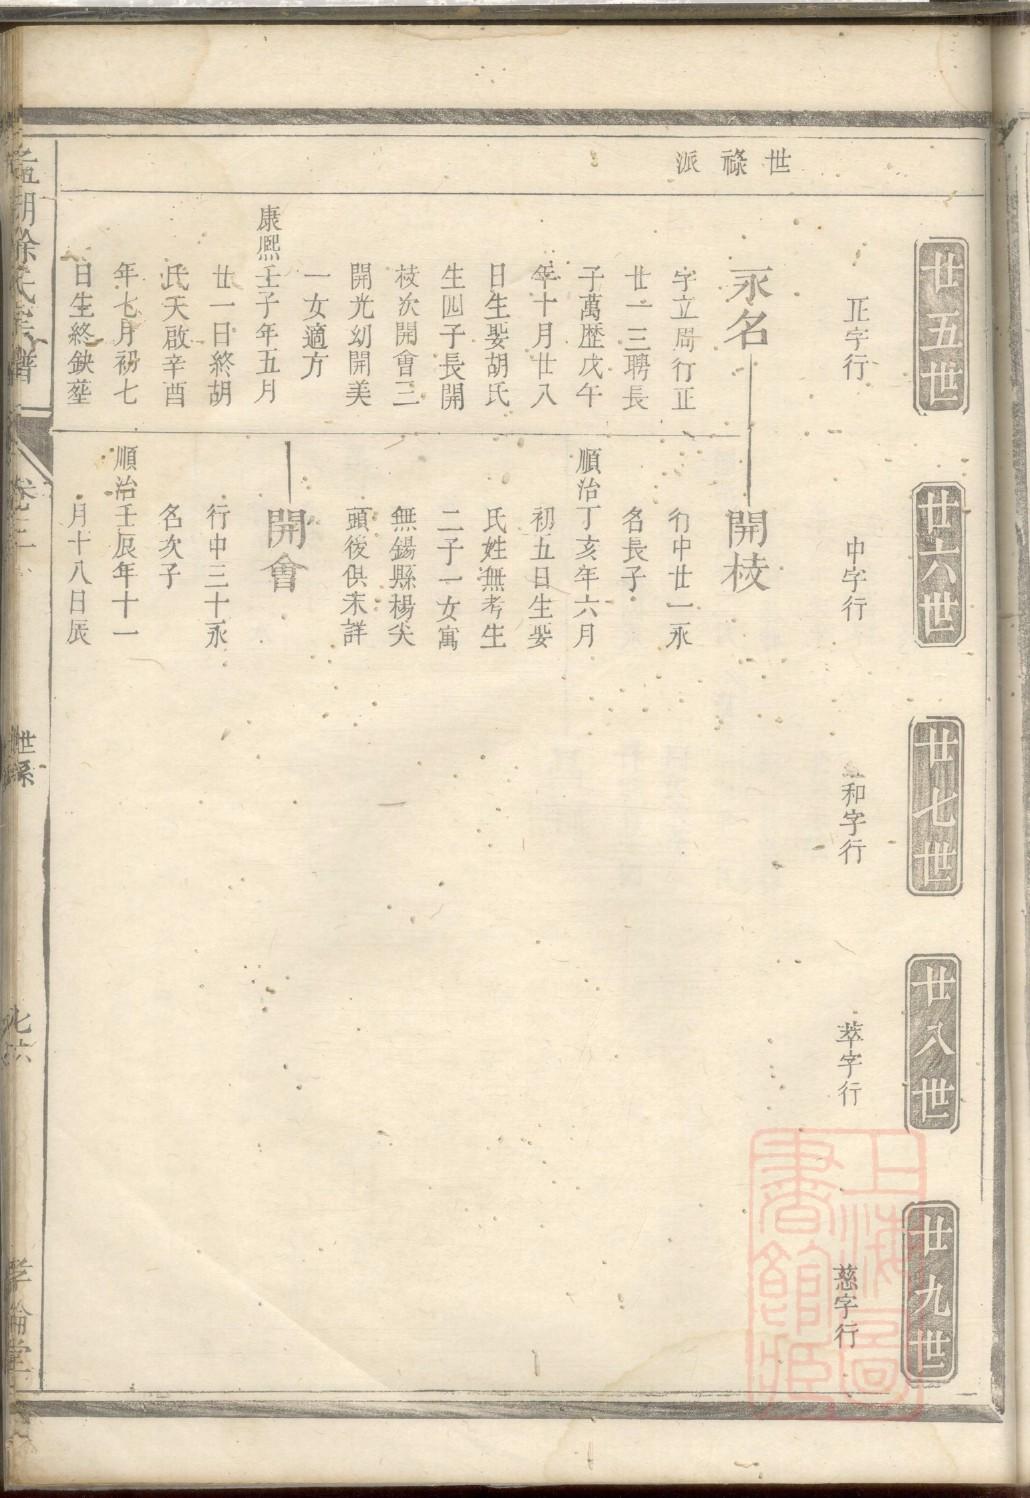 世祿派
廿五世
正字行
廿六世
中字行
廿七世
和字行
廿八世
萃字行
廿九世
慈字行
永名
字立周行正
廿一三聘長
子萬歷戊午
年十月廿八
日生娶胡氏
生四子長開
枝次開會三
開光幼開美
一女適方
康熙壬子年五月
廿一日終胡
氏天啟辛酉
年七月初七
日生終缺塟
開枝
行中廿一永
名長子
順治丁亥年六月
初五日生娶
氏姓無考生
二子一女寓
無錫縣楊尖
頭後俱未詳
開會
行中三十永
名次子
順治壬辰年十一
月十八日辰
徐氏宗譜
卷三
世系
倫堂
上海圖書館藏